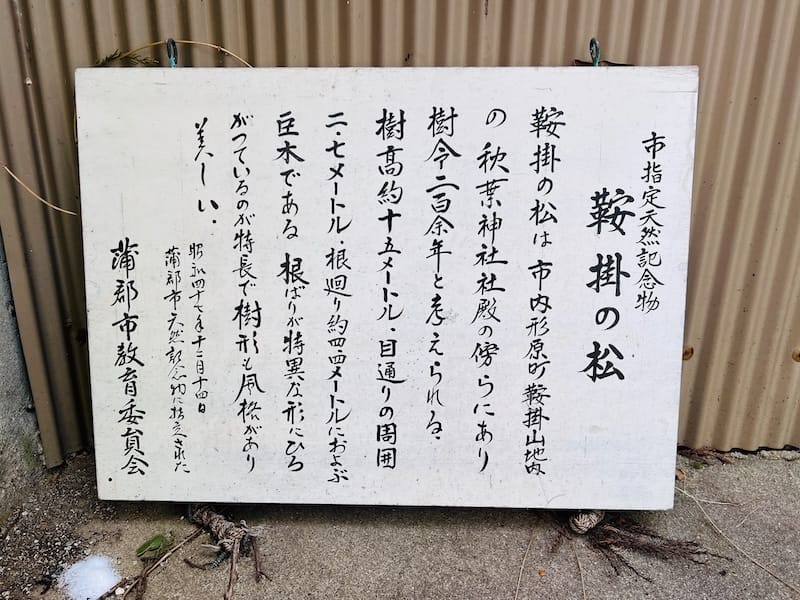 市指定天然記念物
鞍掛の松
鞍掛の松は市内形原町鞍掛山地内
の秋葉神社社殿の傍らにあり
樹令二百余年と考えられる.
樹高約十五メートル・目通りの周囲
二・七メートル・根廻り約四・四メートルにおよぶ
巨木である 根ばりが特異な形にひろ
がつているのが特長で樹形も風格があり
美しい.
昭和四十七年十二月十四日
蒲郡市天然記念物に指定された
蒲郡市教育委員会